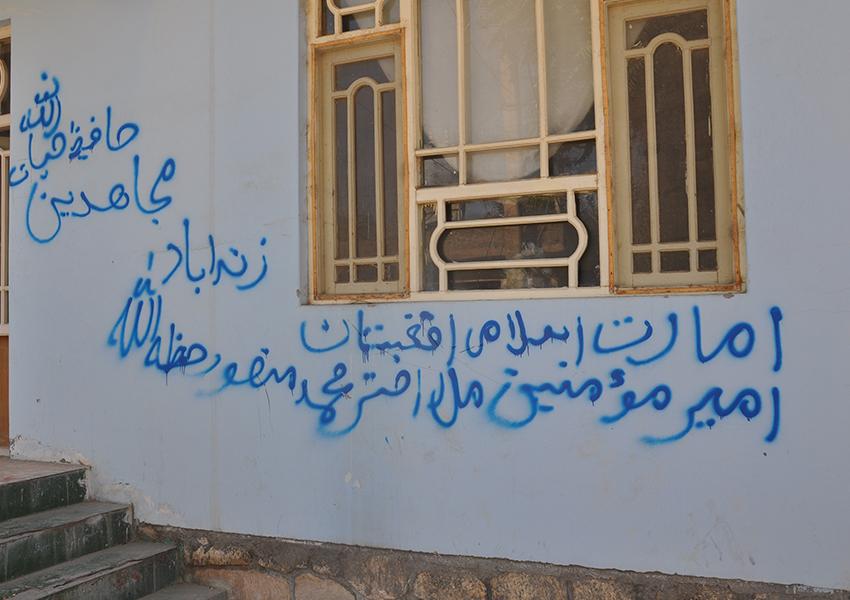 حافظ حیات الله
مجاهدین
زنداباد
امارت اسلامی افغنستان
امیر مؤمنین ملا اختر محمد منصور حفظه الله